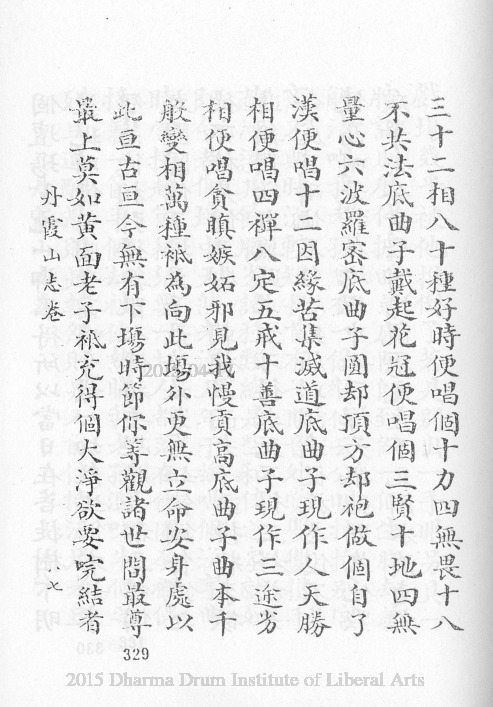 三十二相八十種好時便唱個十力四無畏十八
不共法底曲子戴起花冠便唱個三賢十地四無
量心六波羅密底曲子圓却頂方却袍做個自了
漢便唱十二因緣苦集滅道底曲子現作人天勝
相便唱四禪八定五戒十善底曲子現作三途劣
相便唱貪瞋嫉妬邪見我慢貢高底曲子曲本千
般變相萬種祗為向此塲外更無立命安身處以
此亘古亘今無有下塲時節你等觀諸世間最尊
最上莫如黃面老子祗充得個大淨欲要唍結者
丹霞山志卷 七
329
2015 Dharma Drum Institute of Liberal Arts